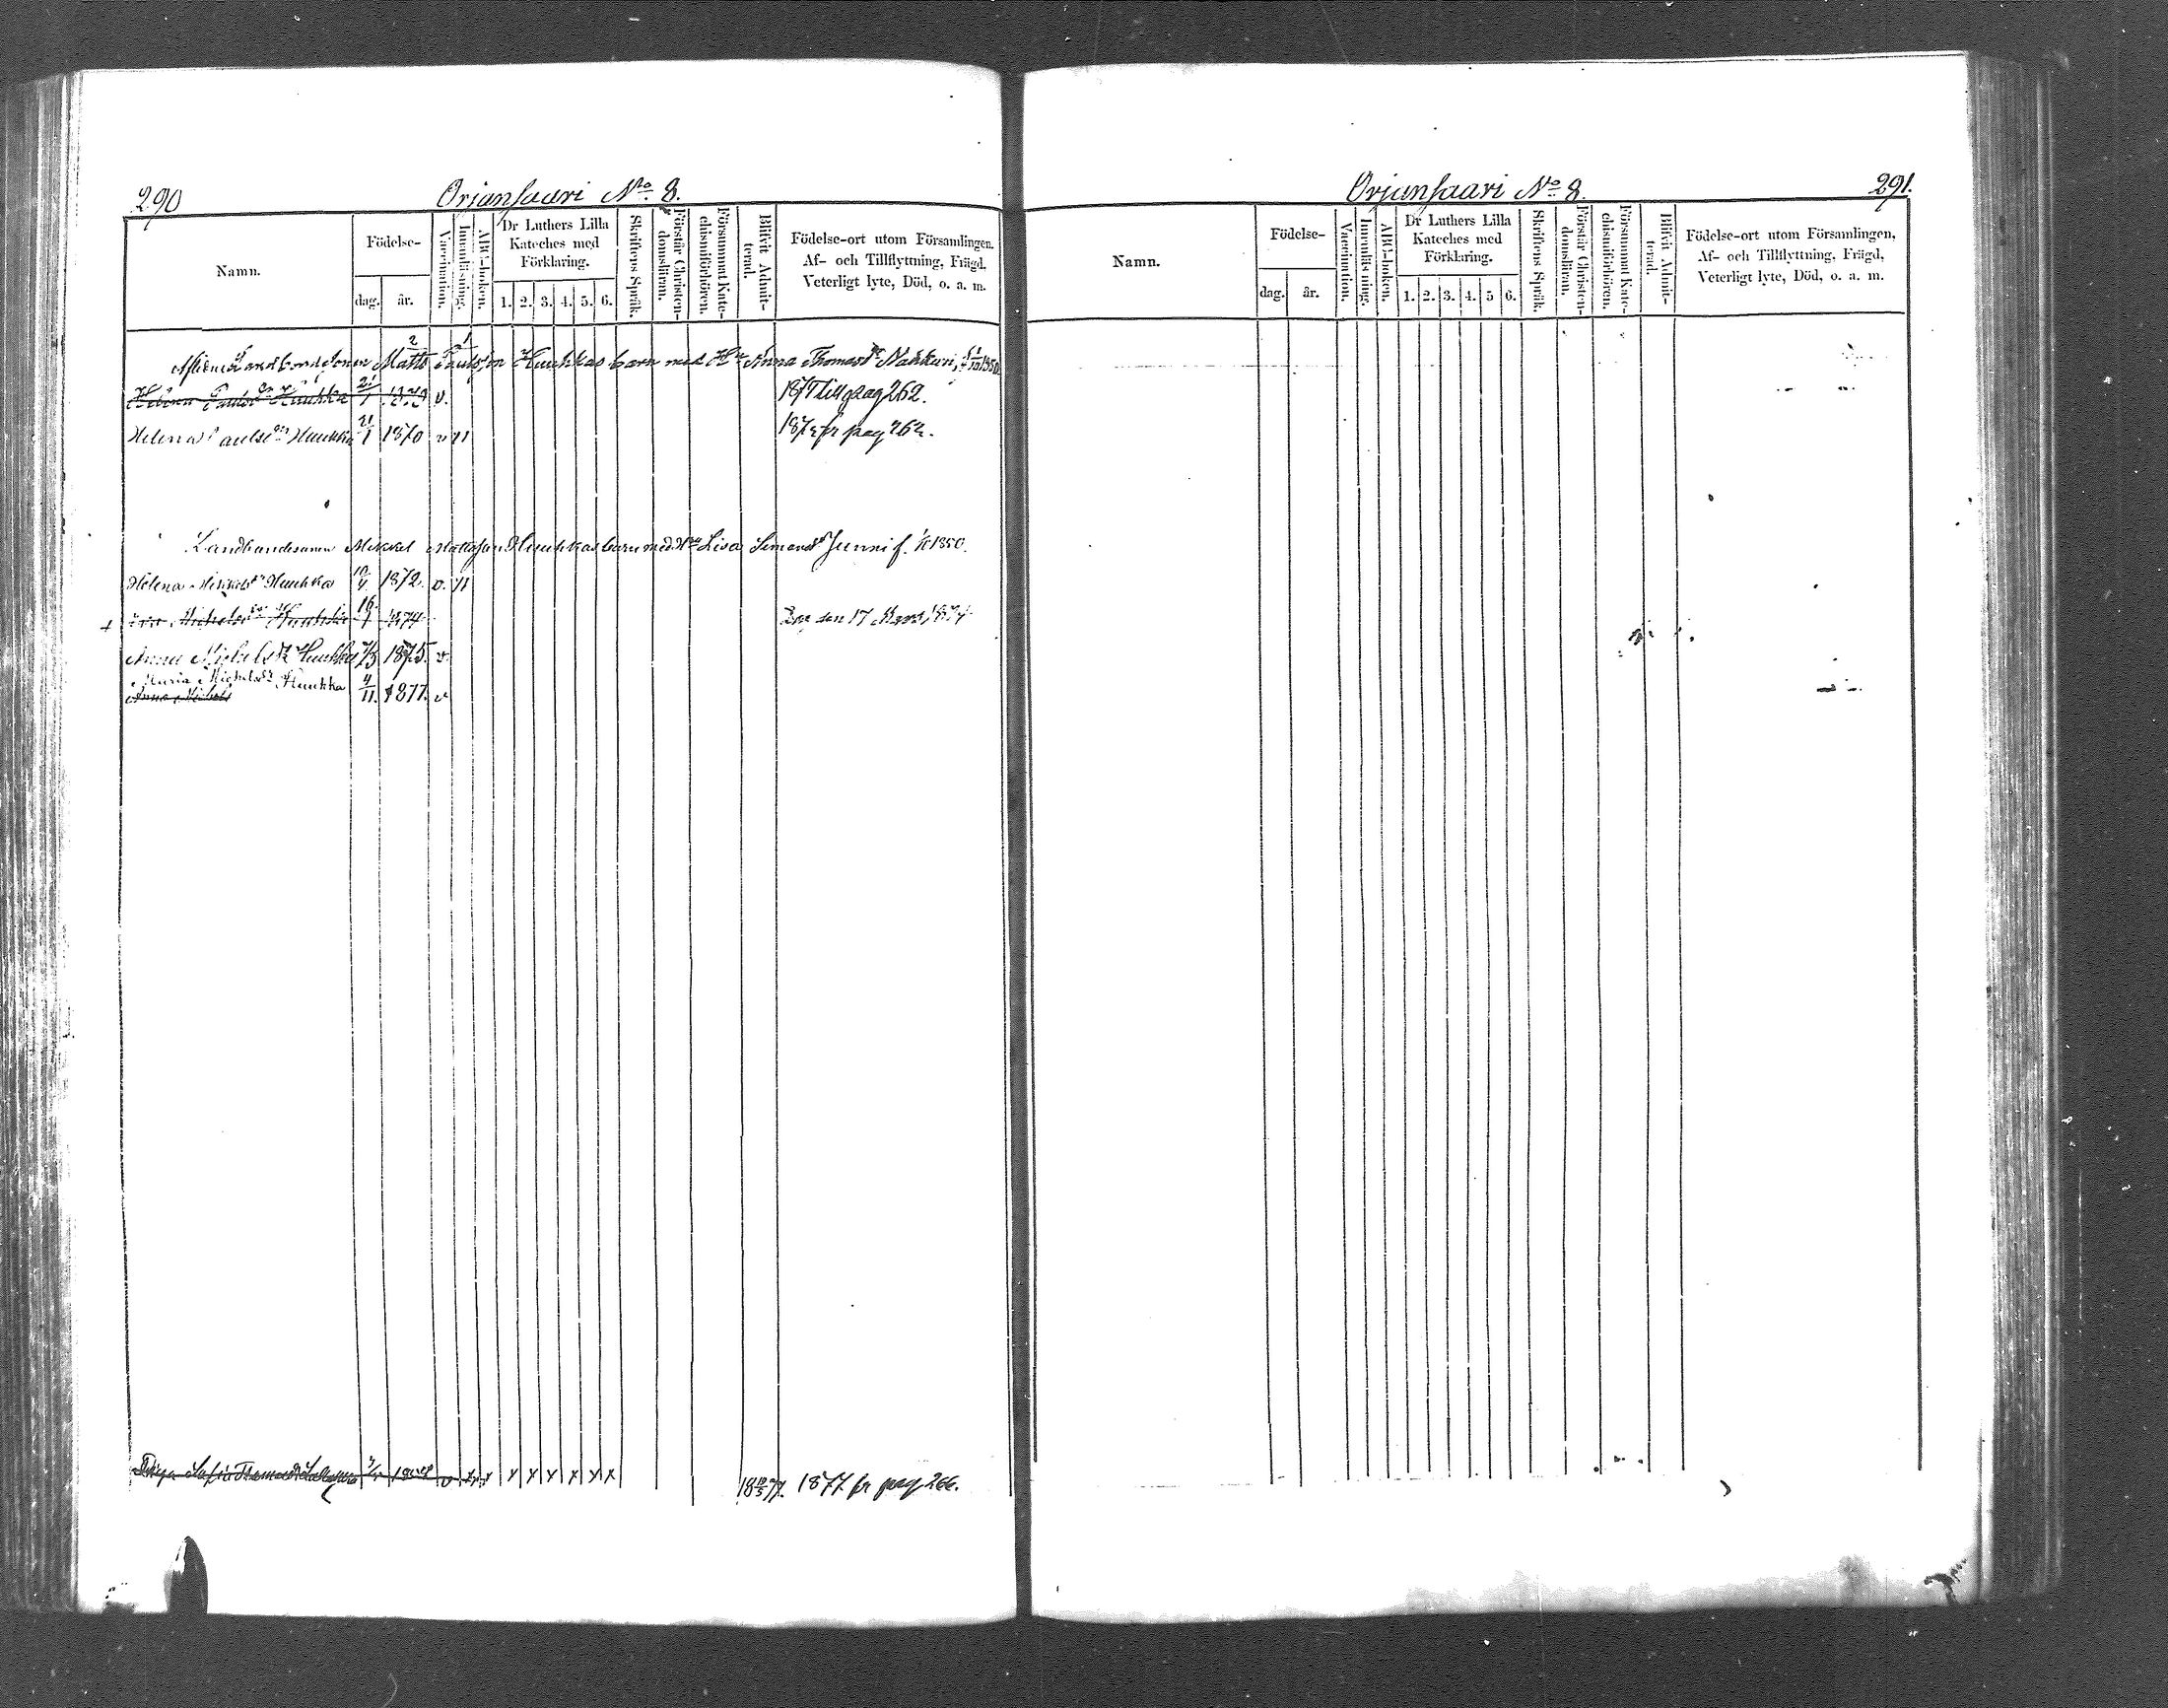 290
Orjansaari No 8.
Namn.
Födelse-
dag.
år.
Vaccination.
Innanläsning.
ABC-boken.
Dr Luthers Lilla
Kateches med
Förklaring.
1. 2. 3. 4. 5. 6.
Skriftens Språk.
Förstår Christen-
domsläran.
Försummat Kate-
chismiförhören.
Blifvit Admit-
terad.
Födelse-ort utom Församlingen.
Af- och Tillflyttning, Frägd.
Veterligt lyte, Död, o. a. m.
2 1
Matts Paulsson Huuhkas barn med Anna Thomasdr Nakkari, 1850.
Helena Paulsdr Huuhka 21/1 1870 v. 187 till pag 262.
Helena Paulsdr Huuhka 21/1 1870 v 11 187 fr pag 262.
Landbondesonen Mikkel Mattsson Huuhkas barn med Lisa Simonsdr Junni f. 1850.
Helena Huuhka 1872. v. 11
+ Michelsdr Huuhka 16/1 1874 den 17 Mars 1874
Anna Michelsdr Huuhka 1875. v.
Maria Michelsdr Huukka 4/11. 1877. v
Anna Michels
Sofia v x x x x x x x x 1877 fr pag 266.
Orjansaari No 8.
291.
Namn.
Födelse-
dag.
år.
Vaccination.
Innanläsning.
ABC-boken.
Dr Luthers Lilla
Kateches med
Förklaring.
1. 2. 3. 4. 5 6.
Skriftens Språk.
Förstår Christen-
domsläran.
Försummat Kate-
chismiförhören.
Blifvit Admit-
terad.
Födelse-ort utom Församlingen,
Af- och Tillflyttning, Frägd,
Veterligt lyte, Död, o. a. m.